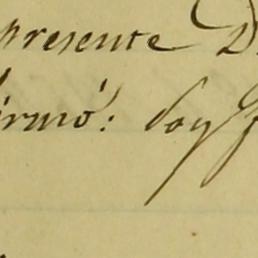 presente D
irmó: doy f